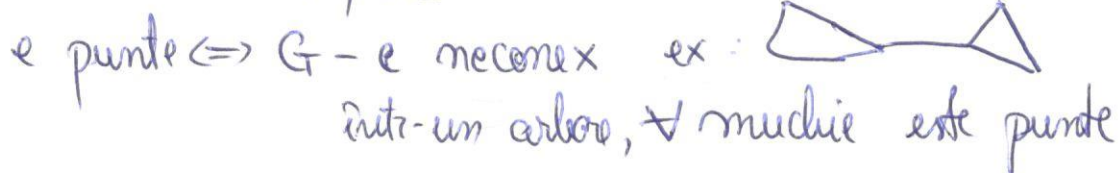 e punte <=> G - e neconex ex:
într-un arbore, ∀ muchie este punte